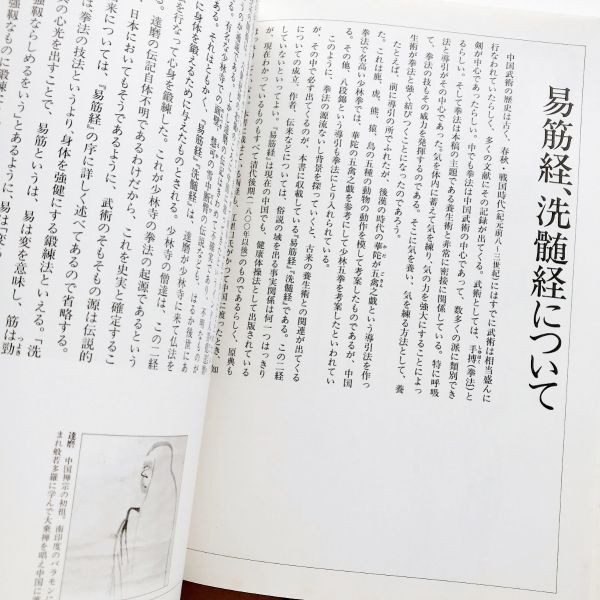 易筋経、洗髄経について
中国武術の歴史は古く、春秋、戦国時代（紀元前八―三世紀）にはすでに武術は相当盛んに
行なわれていたらしく、多くの文献にその記録が出てくる。武術としては、手搏（拳法）と
剣が中心であったらしい。中でも拳法は中国武術の中心であって、数多くの派に類別でき
るらしい。そして拳法は本稿の主題である養生術と非常に密接に関係している。特に呼吸
法と導引がその中心であった。気を体内に蓄えて気を練り、気の力を強大にすることによっ
て、拳法の技もその威力を発揮するのである。そこに気を養い、気を練る方法として、養
生術が拳法と強く結びつくことになったのであろう。
たとえば、前に導引の所でふれたが、後漢の時代の華陀が五禽之戯という導引法を作っ
た。これは鹿、虎、熊、猿、鳥の五種の動物の動作を模して考案したものであるが、中国
拳法で名高い少林拳では、華陀の五禽之戯を参考にして少林五拳を考案したといわれてい
る。その他、八段錦という導引も拳法にとり入れられている。
このように、拳法の源流ないし背景を探っていくと、古来の養生術との関連が出てくる
が、その中で必ず出てくるのが、本書に収載している『易筋経』『洗髄経』である。この二経
についての成立、作者、伝来などについては、俗説の域を出る事実関係は何一つはっきり
していないといってよい。『易筋経』は現在の中国でも、健康体操法として出版されている
が、現在わかっているものもすべて清代後期（一八〇〇年以後）のものであるらしく、原典も
る。有名な少林寺での面壁、慧可の雪中断臂の伝説など
に身体を鍛えるために与えたものとされる。
る。それはともかく、『易筋経』『洗髄経』は、達磨が少林寺に来て仏法を
を行なって心身を鍛練した。これが少林寺の拳法の起源であるという
る。達磨の伝記自体不明であるわけだから、これを史実と確定するこ
、日本においてもそうであるように、武術のそもそもの源は伝説的
来については、『易筋経』の序に詳しく述べてあるので省略する。
は拳法の技法というより、身体を強健にする鍛練法といえる。『洗
の心光を出すことで、易筋というは、易は変を意味し、筋は勁
強靱ならしめるをいう」とあるように、易は「変
達磨 中国禅宗の初祖。南印度のバラモンに
まれ般若多羅に学んで大乗禅を唱え中国に